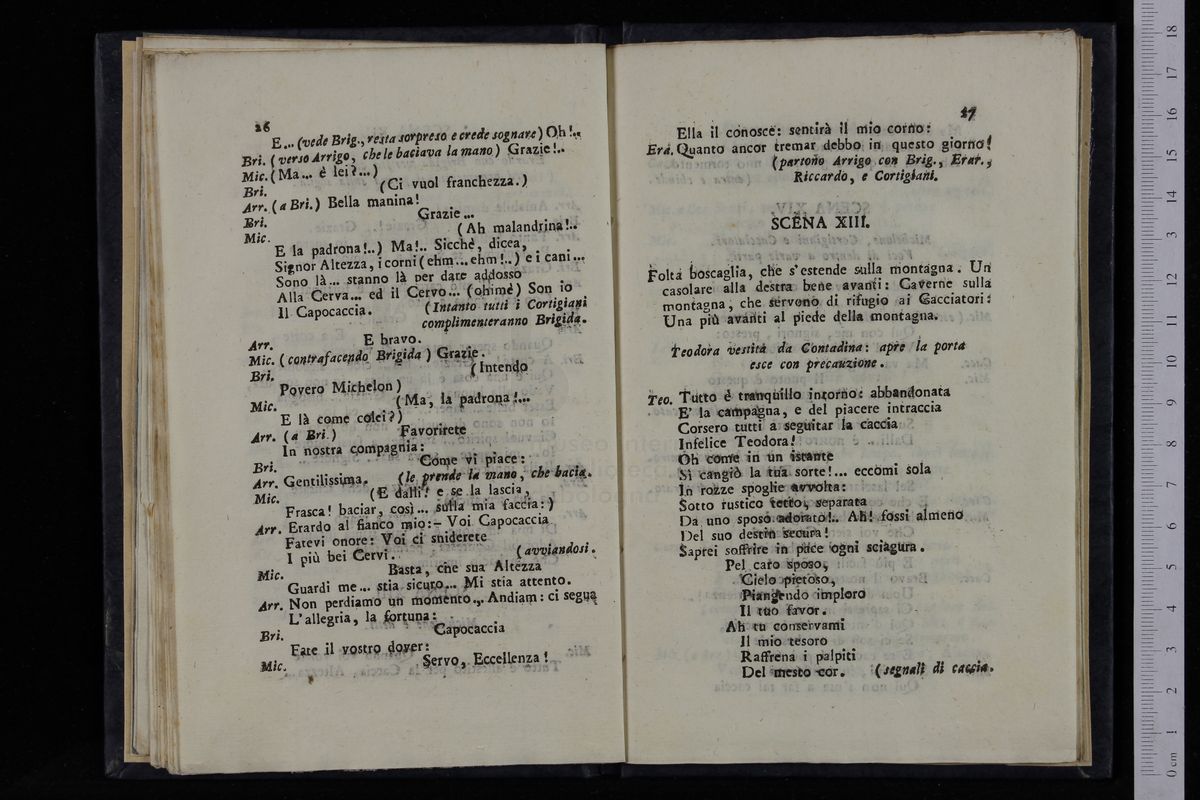 26
E... (vede Brig., resta sorpreso e crede sognare) Oh!..
Bri. (verso Arrigo, che le baciava la mano) Grazie!..
Mic. (Ma... è lei?...)
Bri. (Ci vuol franchezza.)
Arr. (a Bri.) Bella manina!
Bri. Grazie...
Mic. (Ah malandrina!..
E la padrona!..) Ma!.. Sicchè, dicea,
Signor Altezza, i corni (ehm...ehm!..) e i cani...
Sono là... stanno là per dare addosso
Alla Cerva... ed il Cervo... (ohimè) Son io
Il Capocaccia. (Intanto tutti i Cortigiani
complimenteranno Brigida.
Arr. E bravo.
Mic. (contrafacendo Brigida) Grazie.
Bri. (Intendo
Povero Michelon)
Mic. (Ma, la padrona!...
E là come colei?)
Arr. (a Bri.) Favorirete
In nostra compagnia:
Bri. Come vi piace:
Arr. Gentilissima. (le prende la mano, che bacia.
Mic. (E dalli! e se la lascia,
Frasca! baciar, così... sulla mia faccia:)
Arr. Erardo al fianco mio:- Voi Capocaccia
Fatevi onore: Voi ci sniderete
I più bei Cervi. (avviandosi.
Mic. Basta, che sua Altezza
Guardi me... stia sicuro... Mi stia attento.
Arr. Non perdiamo un momento... Andiam: ci segua
L'allegria, la fortuna:
Bri. Capocaccia
Fate il vostro dover:
Mic. Servo, Eccellenza!
27
Ella il conosce: sentirà il mio corno:
Era. Quanto ancor tremar debbo in questo giorno!
(partono Arrigo con Brig., Erar.,
Riccardo, e Cortigiani.
SCENA XIII.
Folta boscaglia, che s'estende sulla montagna. Un
casolare alla destra bene avanti: Caverne sulla
montagna, che servono di rifugio ai Cacciatori:
Una più avanti al piede della montagna.
Teodora vestita da Contadina: apre la porta
esce con precauzione.
Teo. Tutto è tranquillo intorno: abbandonata
E' la campagna, e del piacere intraccia
Corsero tutti a seguitar la caccia
Infelice Teodora!
Oh come in un istante
Si cangiò la tua sorte!... eccomi sola
In rozze spoglie avvolta:
Sotto rustico tetto, separata
Da uno sposo adorato!.. Ah! fossi almeno
Del suo destin secura!
Saprei soffrire in pace ogni sciagura.
Pel caro sposo,
Cielo pietoso,
Piangendo imploro
Il tuo favor.
Ah tu conservami
Il mio tesoro
Raffrena i palpiti
Del mesto cor. (segnali di caccia.